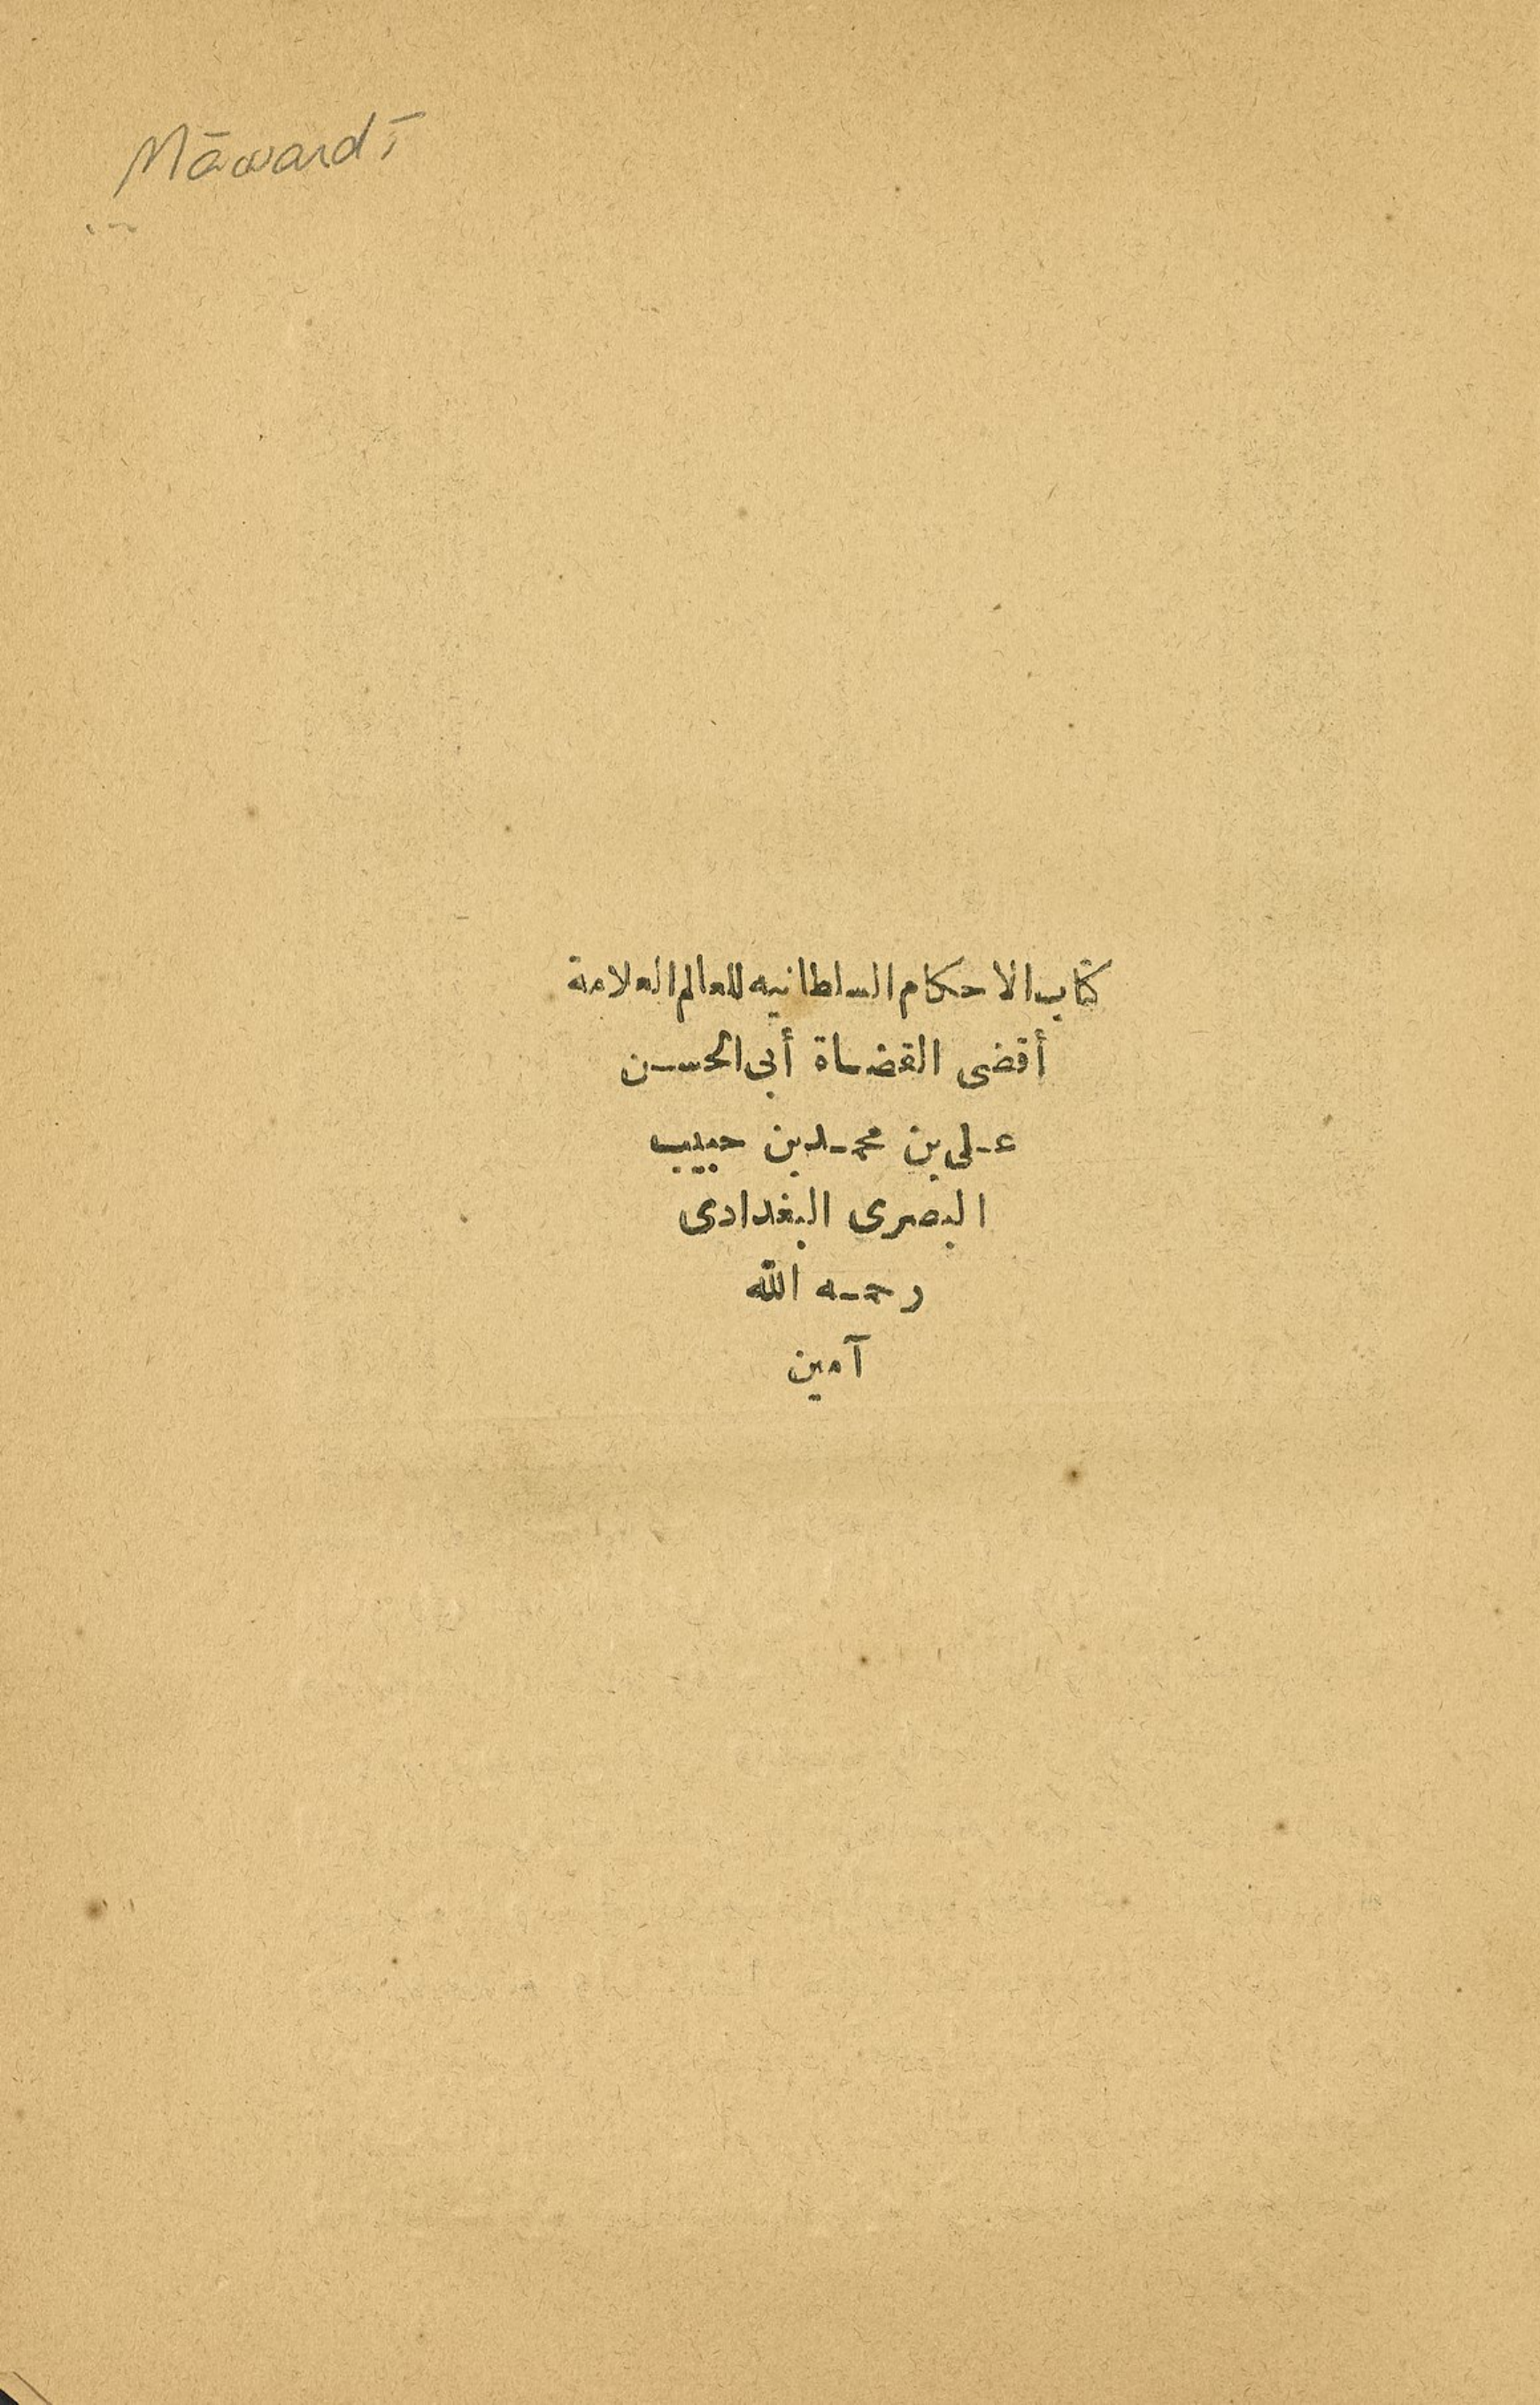 Māwardī
كتاب الاحكام السلطانيه للعالم العلامة
أقضى القضاة أبى الحسن
على بن محمد بن حبيب
البصرى البغدادى
رحمه الله
آمين